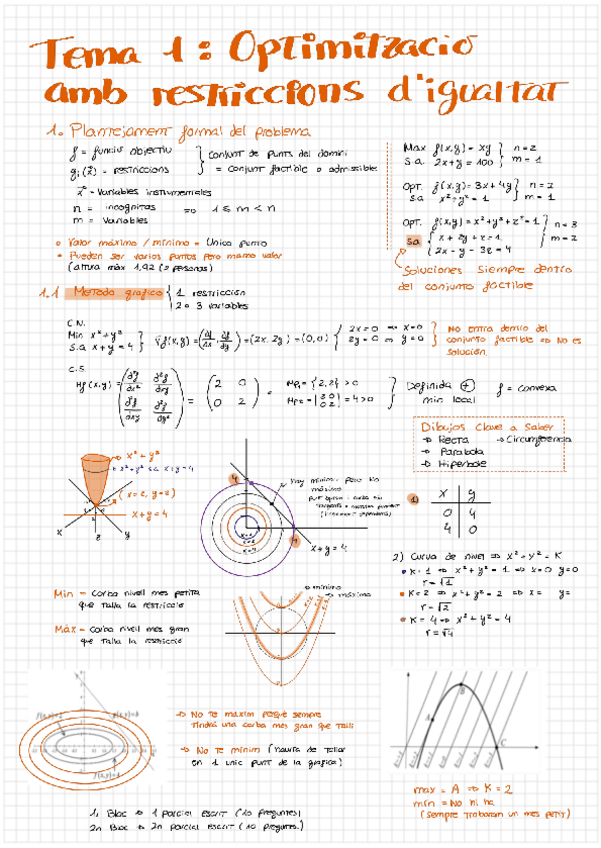 Tema 1: Optimització
amb restriccions d'igualtat
1. Plantejament formal del problema
f = funció objectiu
gᵢ(x̄) = restriccions
conjunt de punts del domini
= conjunt factible o admissible
x̄ = variables instrumentales
n = incognitas
m = variables
=> 1 ≤ m < n
Valor máximo / mínimo = Único punto
Pueden ser varios puntos pero mismo valor
(altura màx 1,92 (2 personas)
Max f(x,y) = xy
s.a. 2x+y = 100
n = 2
m = 1
Opt. f(x,y) = 3x + 4y
s.a x² + y² = 1
n = 2
m = 1
Opt. f(x,y) = x² + y² + z² = 1
s.a. x + 2y + z = 1
2x - y - 3z = 4
n = 3
m = 2
Soluciones siempre dentro
del conjunto factible
1.1 Método gráfico
1 restricción
2 o 3 variables
C.N.
Min x² + y²
s.a x + y = 4
∇f(x,y) = (df/dx, df/dy) = (2x, 2y) = (0,0)
2x = 0 => x = 0
2y = 0 => y = 0
No entra dentro del
conjunto factible => No es
solución.
C.S.
Hf(x,y) = (d²f/dx² d²f/dxdy d²f/dxdy d²f/dy²) = (2 0 0 2) =
MP₁ = {2,2} > 0
= 4 > 0
Definida +
min local
f = convexa
Dibujos clave a saber
→ Recta
→ Circunferencia
→ Parabola
→ Hiperbole
x² + y²
x² + y² s.a x+y = 4
(x=2, y=2)
x+y = 4
x
z
y
4
4
Hay mínimo pero no
máximo
x+y = 4
1)
x y
0 4
4 0
2) Curva de nivell => x² + y² = K
K = 1 => x² + y² = 1 => x=0 y=0
r = √1
K = 2 => x² + y² = 2 => x= y=
r = √2
K = 4 => x² + y² = 4
r = √4
Min = corba nivell mes petita
que talla la restricció
Màx = corba nivell mes gran
que talla la restricció
→ mínimo
→ máximo
→ No te màxim perque sempre
tindrà una corba mes gran que talli
→ No te mínim (hauria de tallar
en 1 unic punt de la grafica)
A
B
C
max = A => K = 2
min = No hi ha
(sempre trobaran un mes petit)
1r Bloc → 1 parcial escrit (10 preguntes)
2n Bloc → 2n parcial escrit (10 preguntes.)